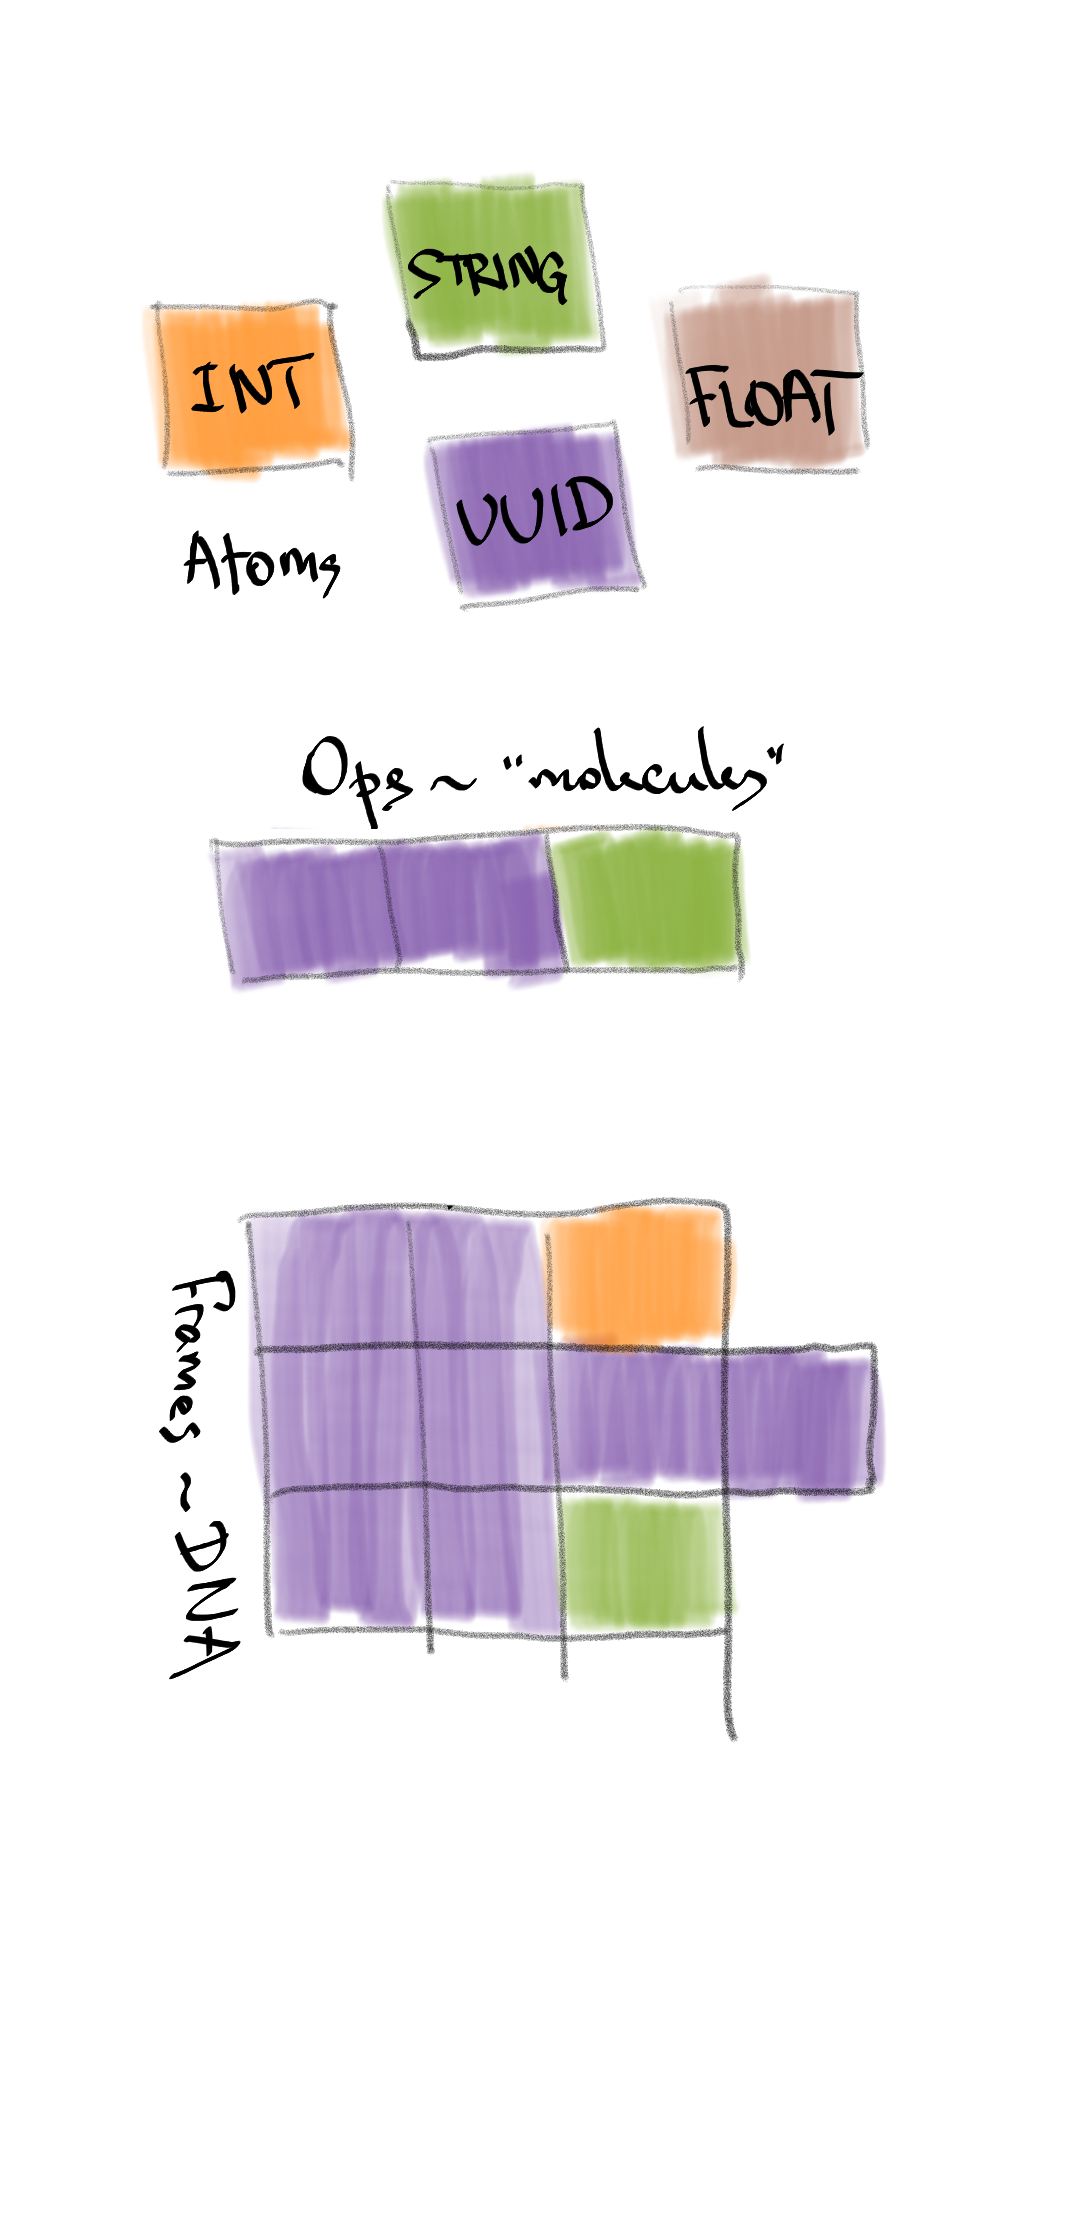 STRING
INT
FLOAT
UUID
Atoms
Ops ~ "molecules"
Frames ~ DNA